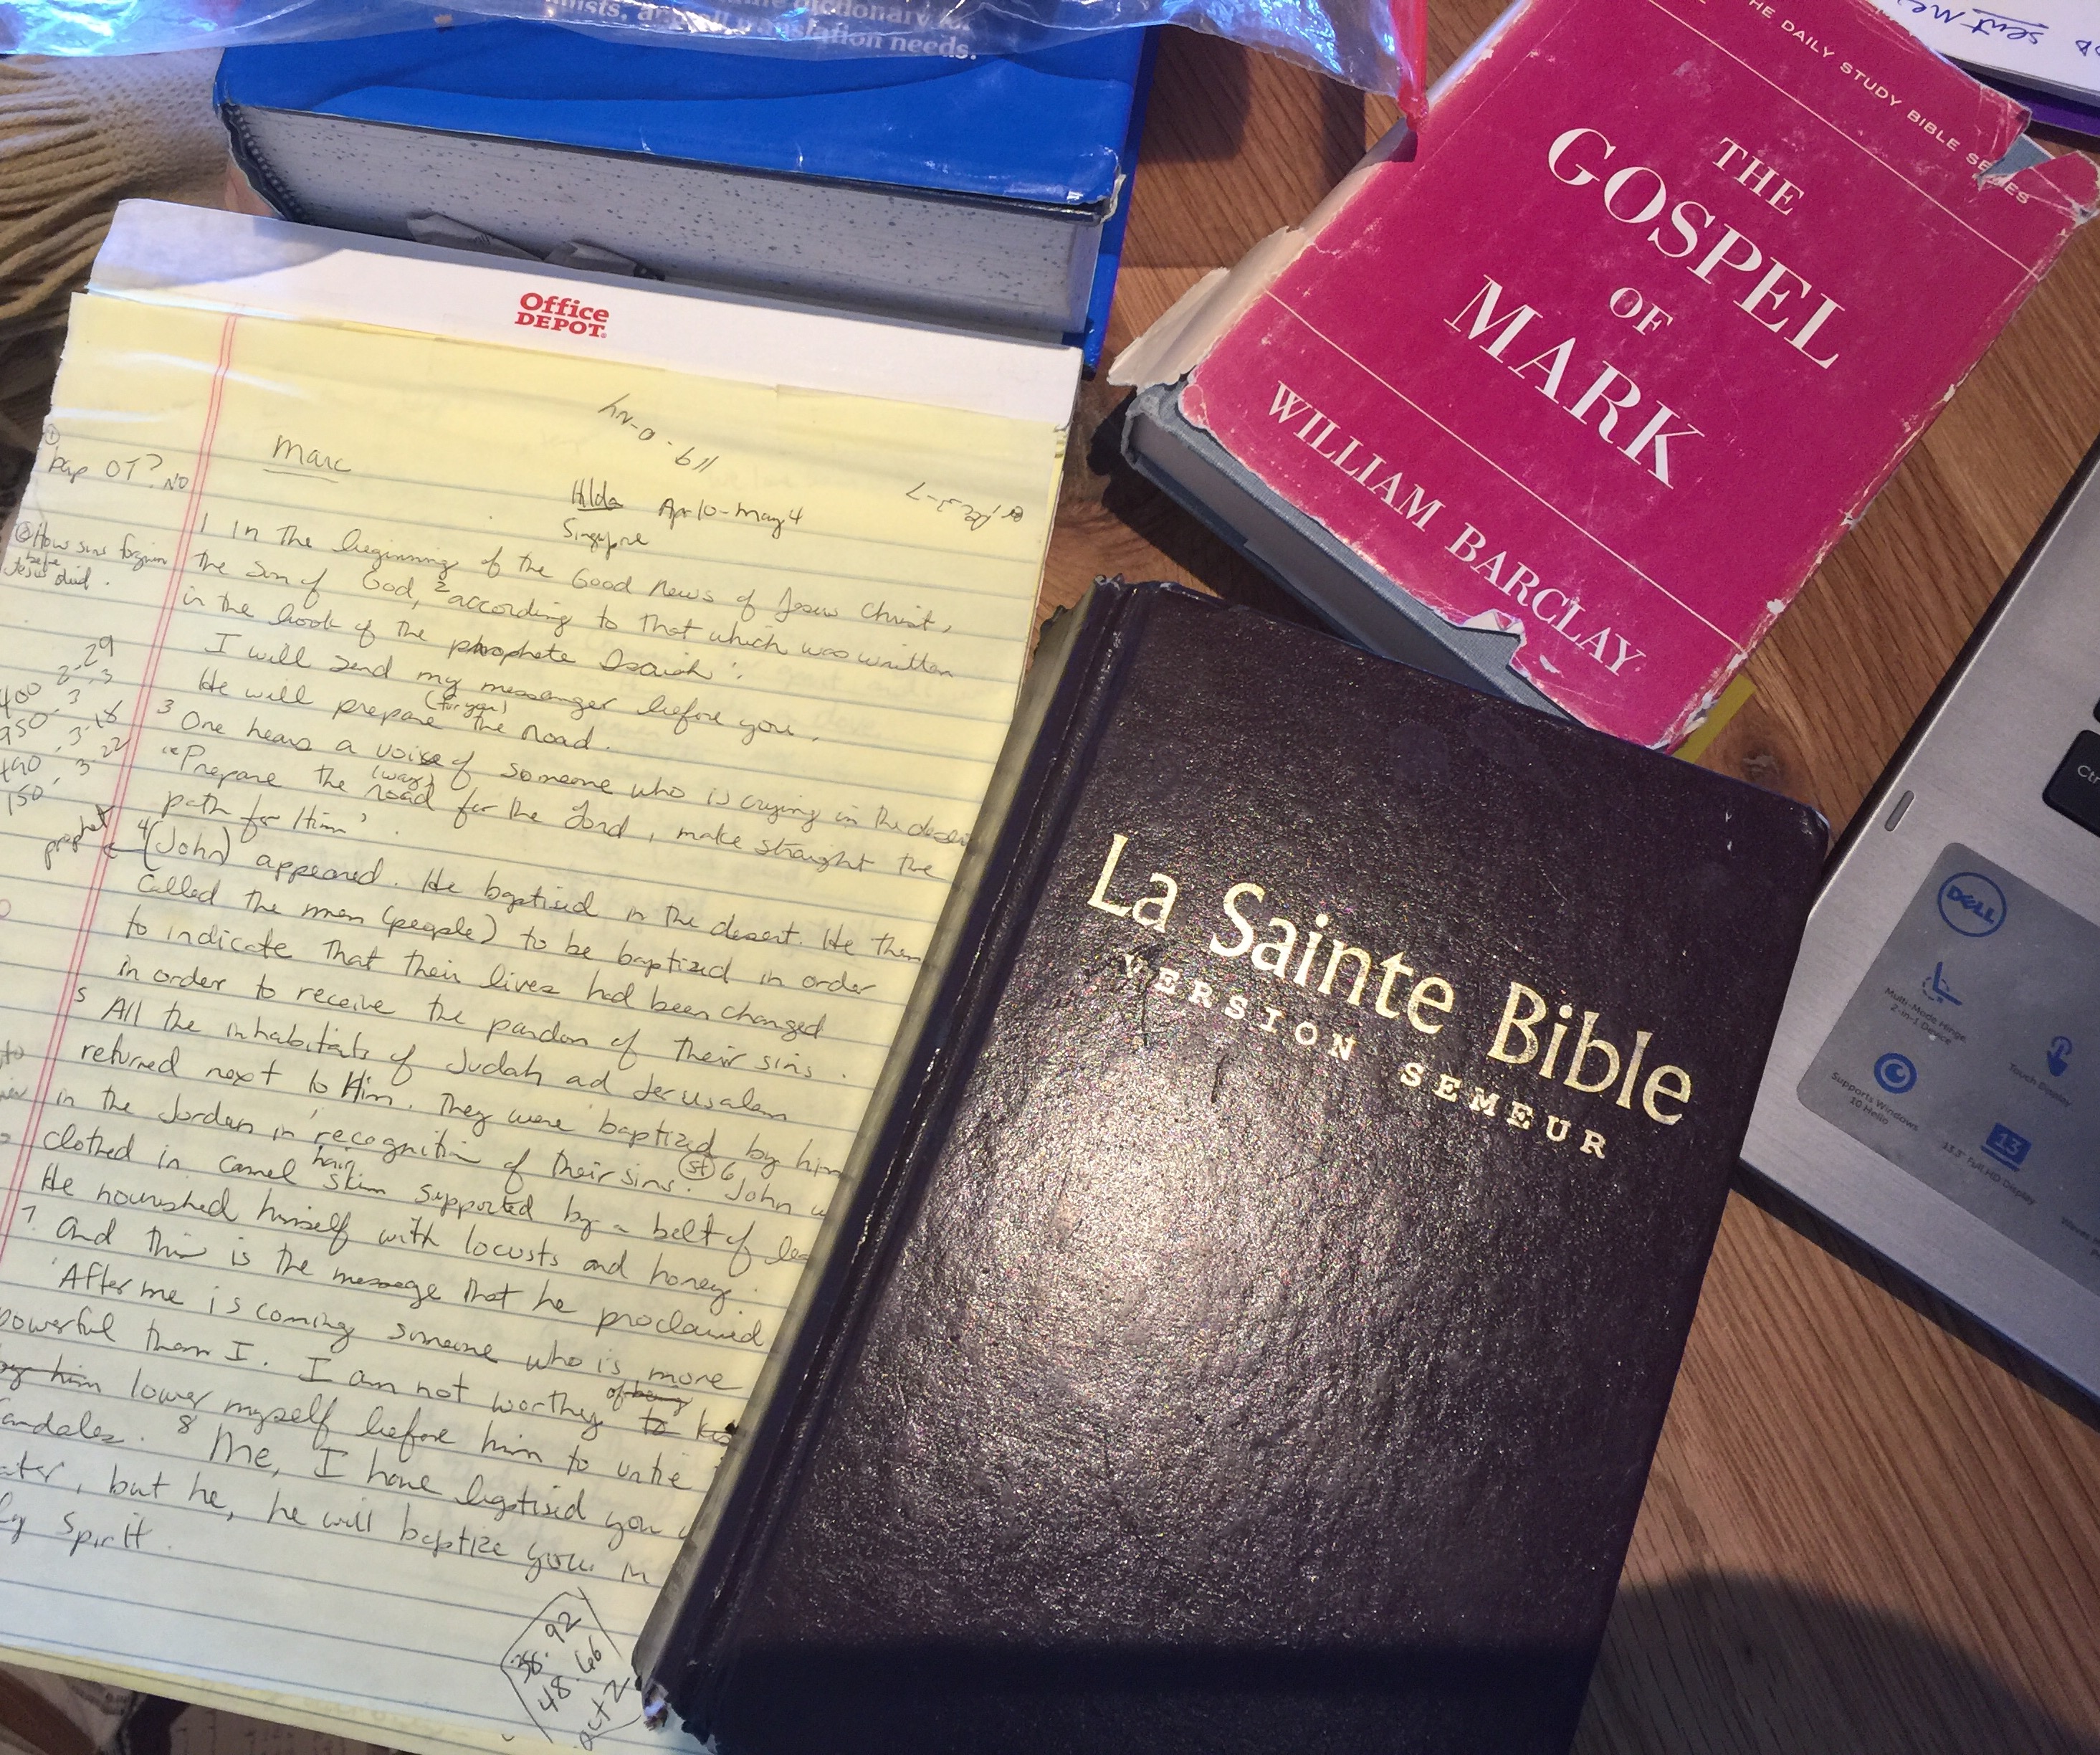 dictionary
translation needs.
THE DAILY STUDY BIBLE SERIES
THE
GOSPEL
OF
MARK
WILLIAM BARCLAY
sent me
Office
DEPOT
Marc
Hilda Apr 10 - May 4
Singapore
bap OT? NO
How sins forgiven
before
Jesus died.
1 In the beginning of the Good News of Jesus Christ,
the son of God, 2 according to that which was written
in the book of the prophete Isaiah:
I will send my messenger before you,
He will prepare (for you) the road.
3 One hears a voice of someone who is crying in the desert
"Prepare the (way) road for the Lord, make straight the
path for Him'.
prophet
4 (John) appeared. He baptised in the desert. He then
called the men (people) to be baptized in order
to indicate that their lives had been changed
in order to receive the pardon of their sins.
5 All the inhabitats of Judah ad Jerusalem
returned next to Him. They were baptized by him
in the Jordan in recognition of their sins. 6 John
clothed in camel hair skin supported by a belt of
He nourished himself with locusts and honey.
7. And this is the message that he proclaimed
'After me is coming someone who is more
powerful than I. I am not worthy of being to
him lower myself before him to untie
8 Me, I have baptised you
but he, he will baptize you in
spirit.
29
400
3
950 3-18
490 3-22
150
92
38.
66
48.
La Sainte Bible
VERSION SEMEUR
DELL
Multi-Mode Hinge
2-in-1 Device
Touch Display
Supports Windows
10 Hello
13
13.3" Full HD Display
Ctrl